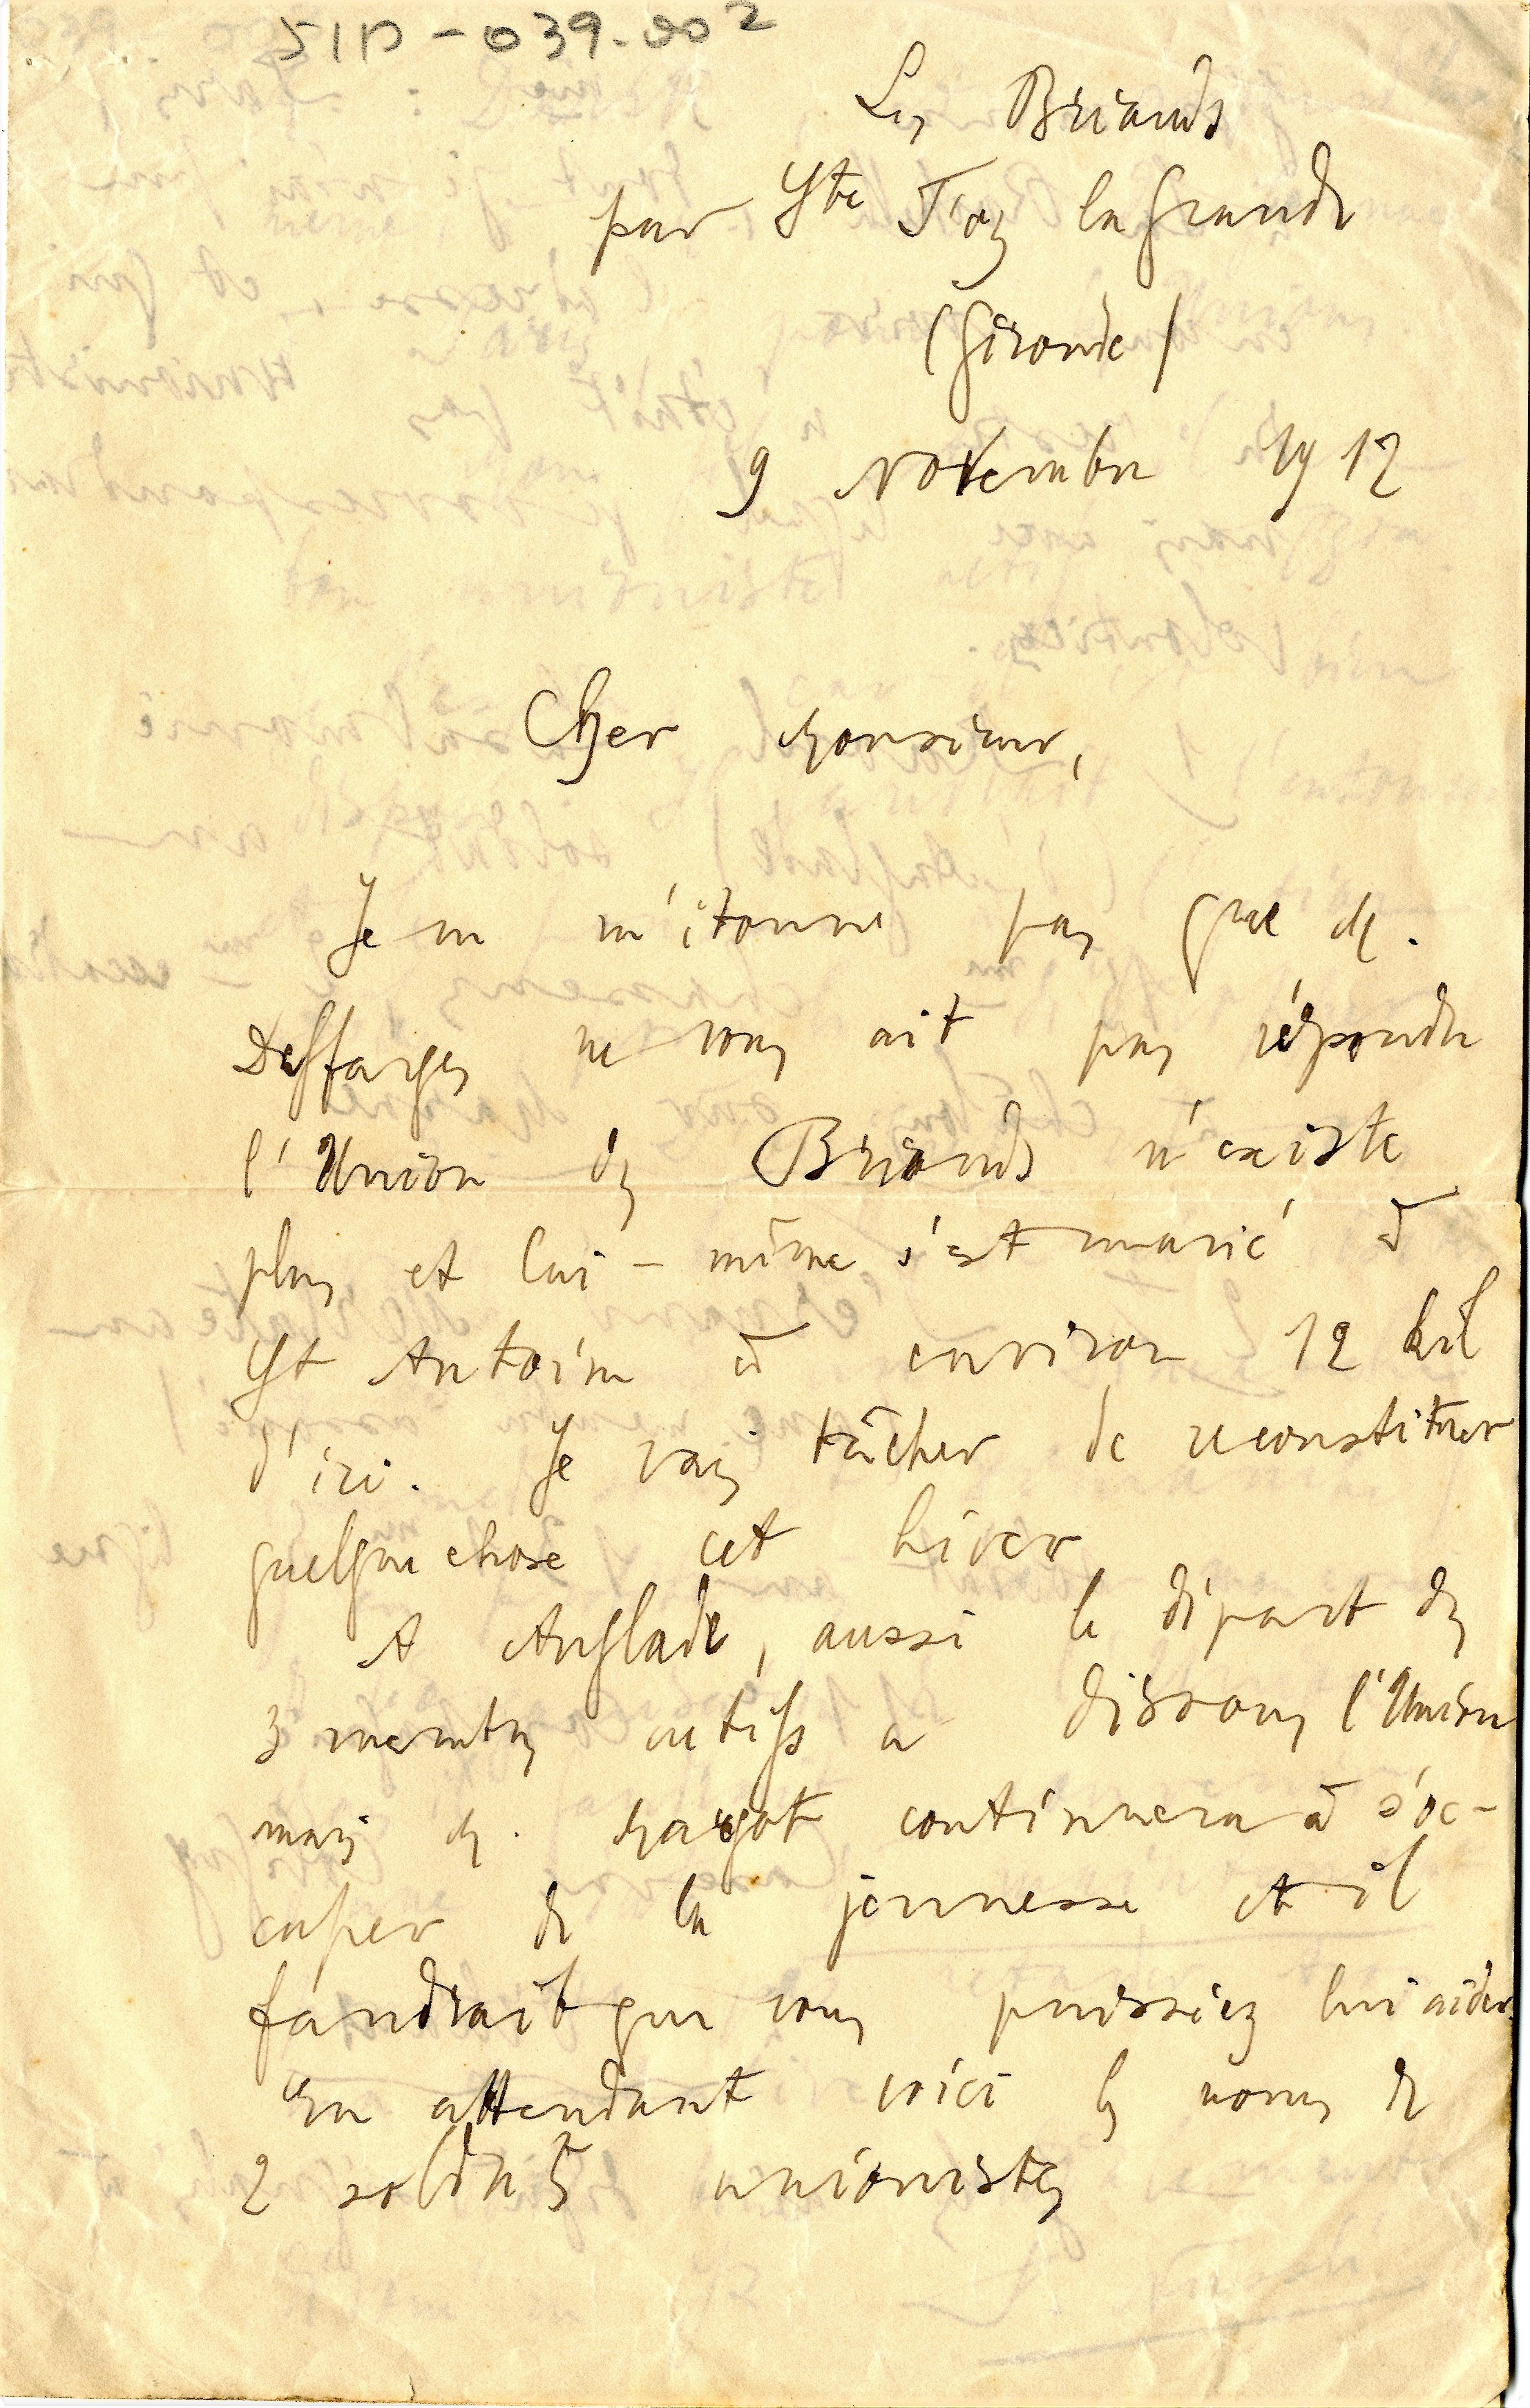 51D-039.002
Les Briands
par Ste Foy la Grande
(Gironde)
9 Novembre 1912
Cher Monsieur,
Je ne m'étonne pas que M.
Deffarges ne vous ait pas répondu
l'Union des Briands n'existe
plus et lui-même s'est marié à
St Antoine à environ 12 kil
d'ici. Je vais tâcher de reconstituer
quelque chose cet hiver
A Anglade, aussi le départ des
3 membres actifs a dissous l'Union
mais M. Margot continuera à s'oc-
cuper de la jeunesse et il
faudrait que vous puissiez lui aider.
En attendant voici les noms de
2 soldats unionistes